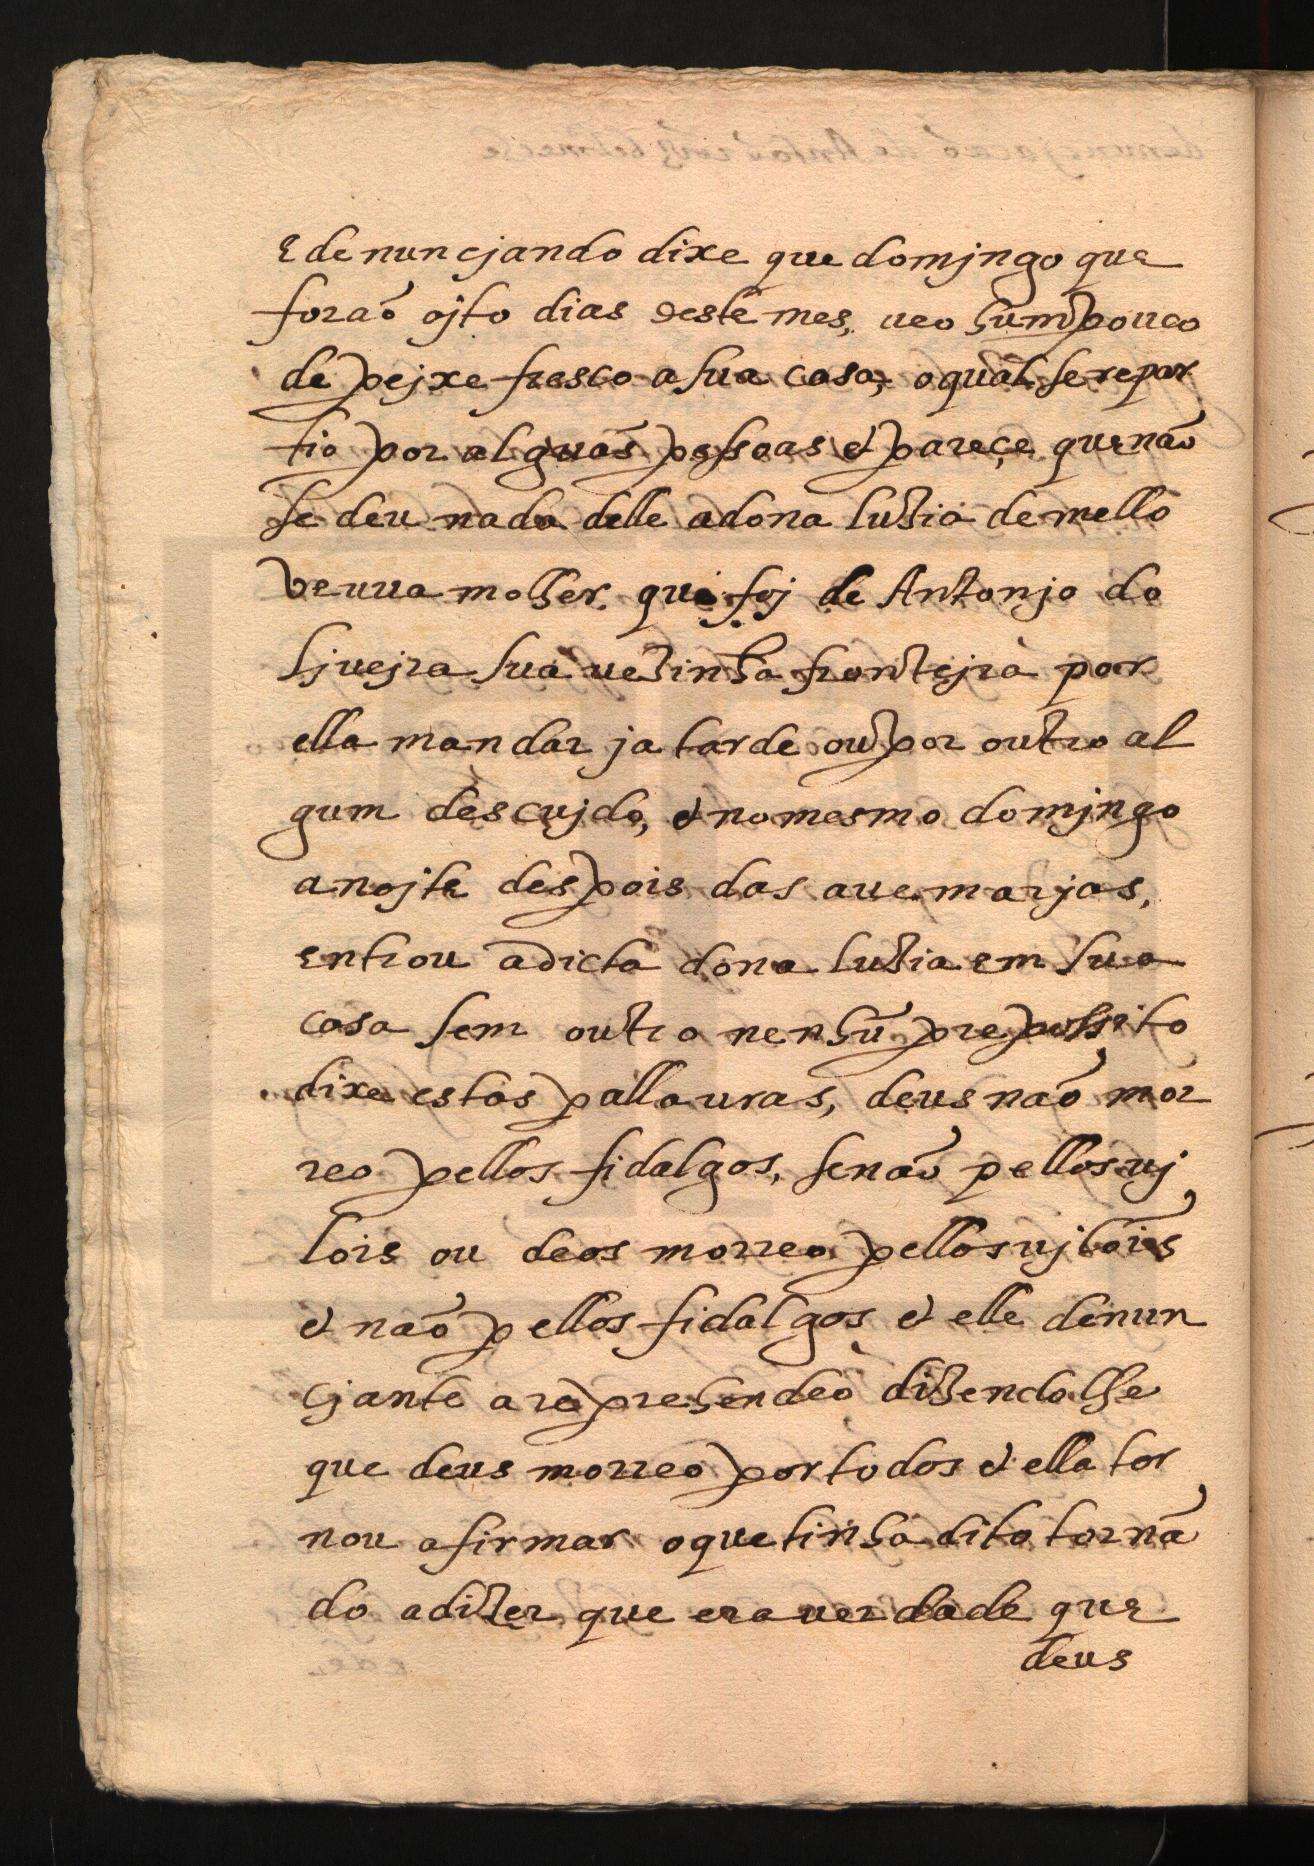 E denuncjando dixe que domjngo que
forão ojto dias deste mes, ueo hum pouco
de pejxe fresco a sua casa, o qual se repar
tio por alguãs pessoas & pareçe que não
se deu nada delle a dona luzia de mello
veuua molher que foj de Antonjo do
ljuejra sua uezinha frontejra por
ella mandar ja tarde ou por outro al
gum descujdo, & no mesmo domjngo
a nojte despois das aue marjas,
entrou a dicta dona luzia em sua
casa sem outro nenhũ prepossito
dixe estas pallauras, deus não mor
reo pellos fidalgos, senão pellos uj
lois ou deos morreo pellos ujlõis
& não pellos fidalgos & elle denun
cjante a reprehendeo dizendolhe
que deus morreo por todos & ella tor
nou afirmar o que tinha dito tornã
do a dizer que era uerdade que
deus